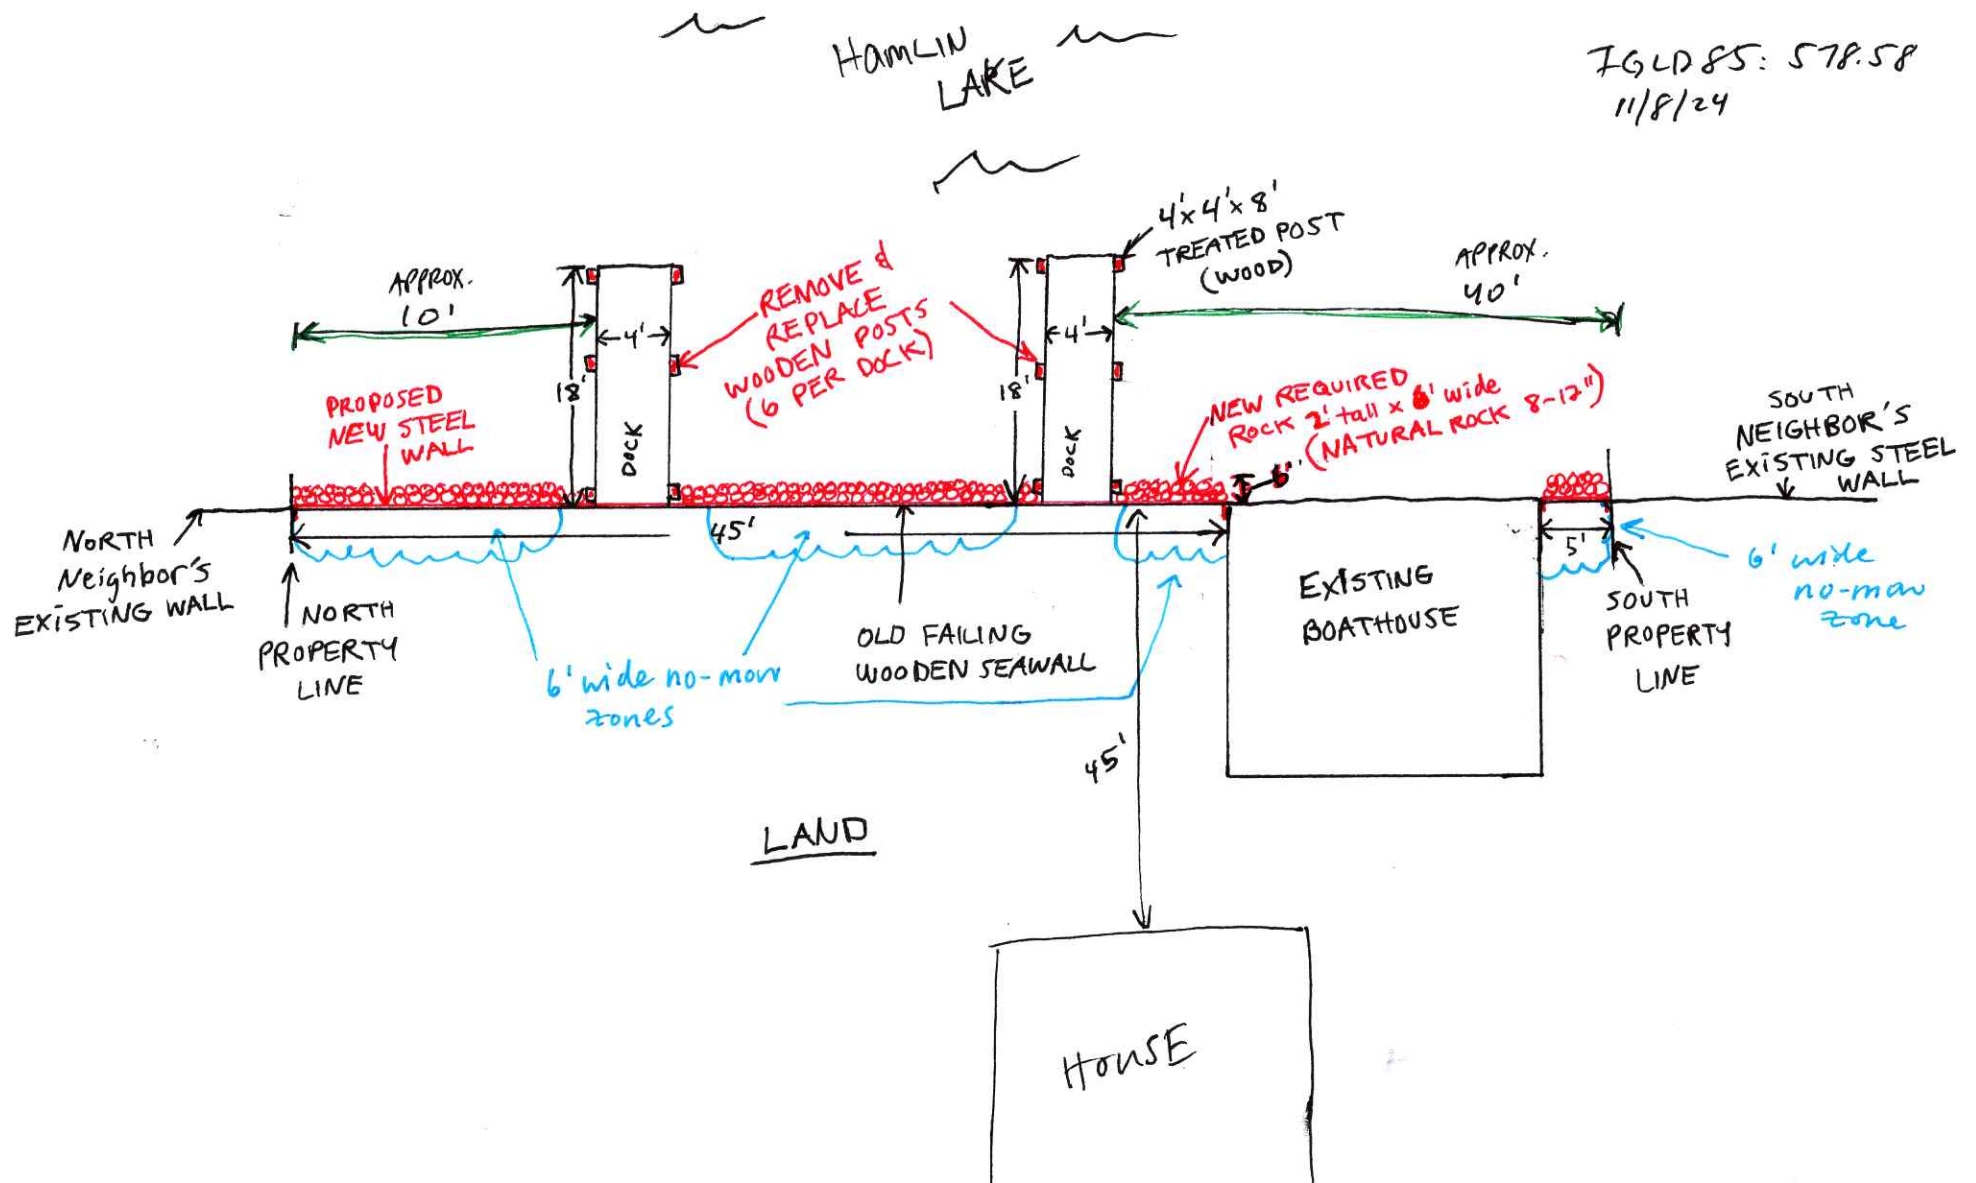 HAMLIN
LAKE
IGLD85: 578.58
11/8/24
4'x4'x8'
TREATED POST
(WOOD)
APPROX.
10'
APPROX.
40'
REMOVE &
REPLACE
WOODEN POSTS
(6 PER DOCK)
4'
18'
DOCK
4'
18'
DOCK
PROPOSED
NEW STEEL
WALL
NEW REQUIRED
ROCK 2' tall x 6' wide
(NATURAL ROCK 8-12")
6'
SOUTH
NEIGHBOR'S
EXISTING STEEL
WALL
NORTH
Neighbor's
EXISTING WALL
45'
5'
NORTH
PROPERTY
LINE
6' wide no-mow
zones
OLD FAILING
WOODEN SEAWALL
EXISTING
BOATHOUSE
SOUTH
PROPERTY
LINE
6' wide
no-mow
zone
45'
LAND
HOUSE